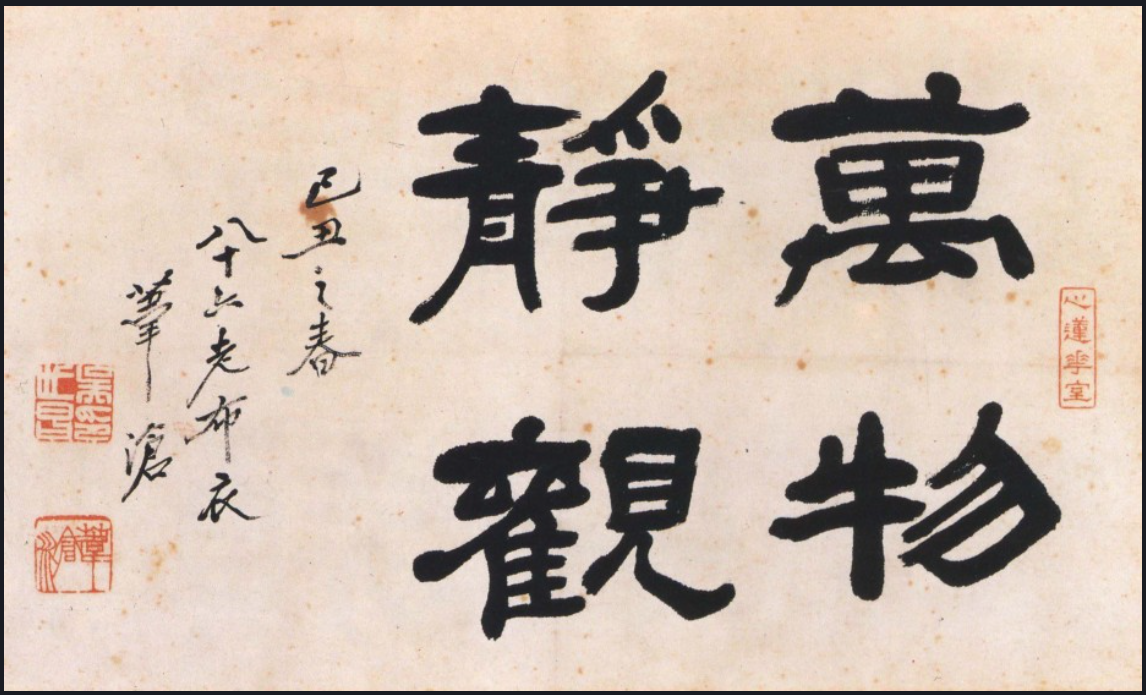 心蓮華室
萬物
靜觀
己丑之春
八十六老布衣
葦滄
吳印世昌
葦滄